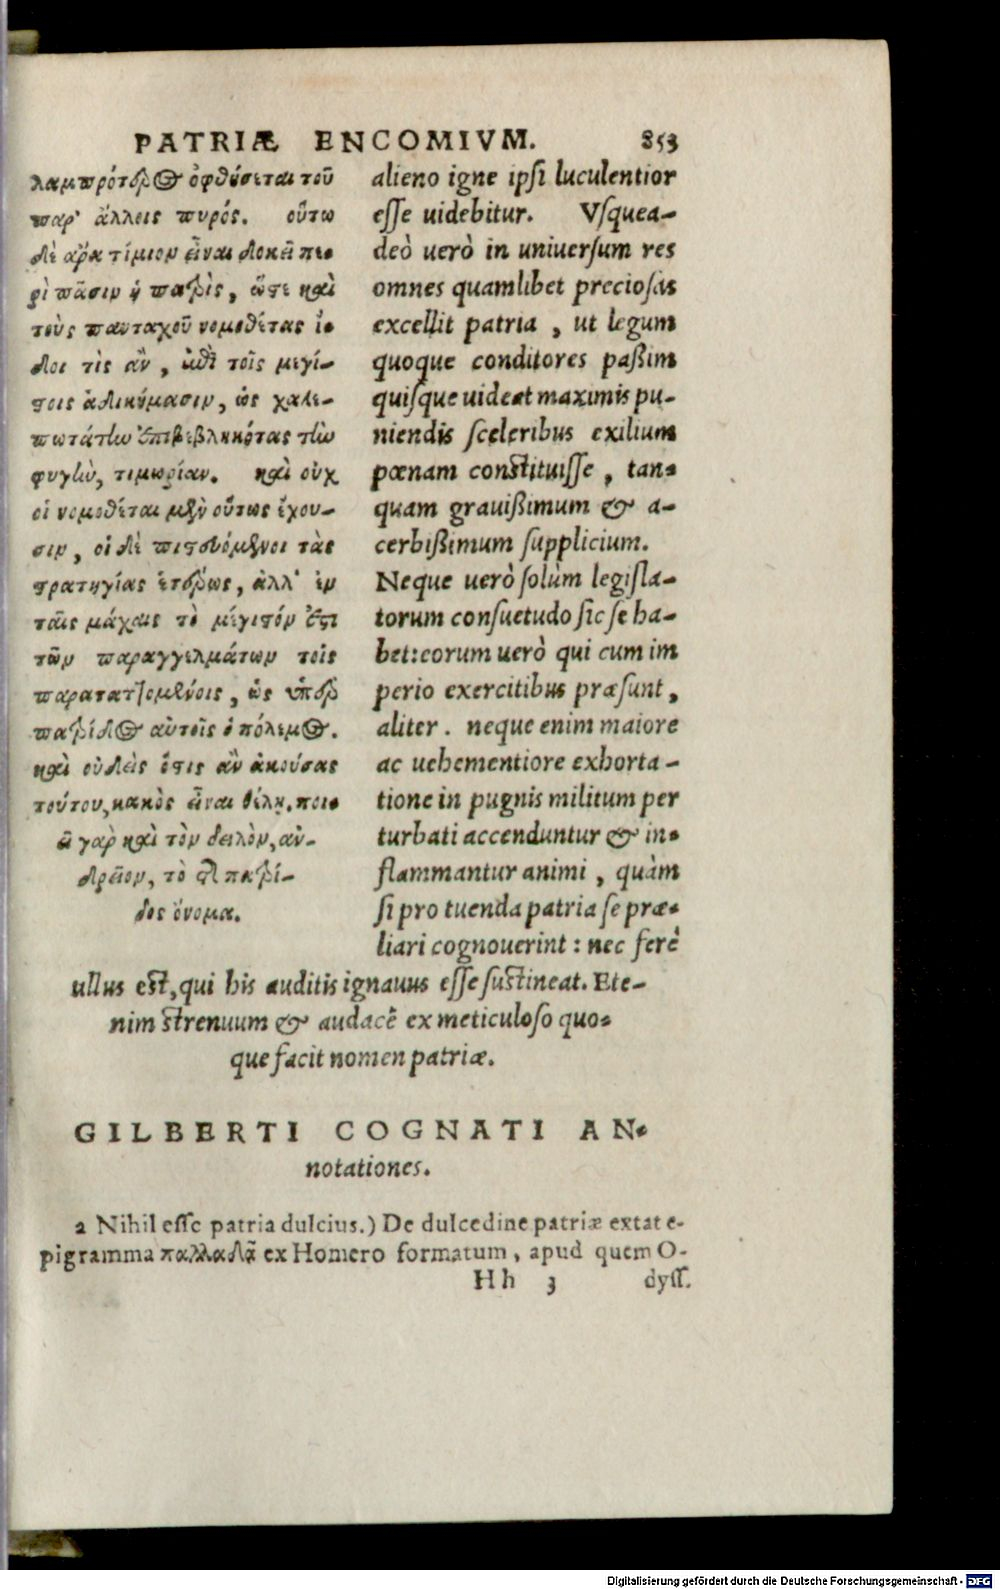 PATRIÆ ENCOMIVM. 853
λαμπρότερος ὀφθήσεται τοῦ
παρ' ἄλλοις πυρός. οὕτω
δὲ ἄρα τίμιον εἶναι δοκεῖ πα-
ρὰ πᾶσιν ἡ πατρὶς, ὥστε καὶ
τοὺς πανταχοῦ νομοθέτας ἴ-
δοι τὶς ἂν, ἐπὶ τοῖς μεγί-
στοις ἀδικήμασιν, ὡς χαλε-
πωτάτην ἐπιβεβληκότας τὴν
φυγὴν, τιμωρίαν. καὶ οὐχ
οἱ νομοθέται μὲν οὕτως ἔχου-
σιν, οἱ δὲ πιστευόμενοι τὰς
στρατηγίας ἑτέρως, ἀλλ' ἐν
ταῖς μάχαις τὸ μέγιστόν ἐστι
τῶν παραγγελμάτων τοῖς
παρατατʃομένοις, ὡς ὑπὲρ
πατρίδος αὐτοῖς ὁ πόλεμος.
καὶ οὐδεὶς ὅστις ἂν ἀκούσας
τούτου, κακὸς εἶναι θέλῃ. ποι-
εῖ γὰρ καὶ τὸν δειλὸν, ἀν-
δρεῖον, τὸ τῆς πατρί-
δος ὄνομα.
alieno igne ipſi luculentior
eſſe uidebitur. Vſquea-
deò uerò in uniuerſum res
omnes quamlibet precioſas
excellit patria, ut legum
quoque conditores paßim
quiſque uideat maximis pu-
niendis ſceleribus exilium
pœnam conſtituiſſe, tan-
quam grauißimum & a-
cerbißimum ſupplicium.
Neque uerò ſolùm legiſla-
torum conſuetudo ſic ſe ha-
bet: eorum uerò qui cum im
perio exercitibus præſunt,
aliter. neque enim maiore
ac uehementiore exhorta-
tione in pugnis militum per
turbati accenduntur & in-
flammantur animi, quàm
ſi pro tuenda patria ſe præ-
liari cognouerint: nec ferè
ullus eſt, qui his auditis ignauus eſſe ſuſtineat. Ete-
nim ſtrenuum & audacē ex meticuloſo quo-
que facit nomen patriæ.
GILBERTI COGNATI AN-
notationes.
2 Nihil eſſe patria dulcius.) De dulcedine patriæ extat e-
pigramma παλλαδᾶ ex Homero formatum, apud quem O-
Hh 3 dyſſ.
Digitalisierung gefördert durch die Deutsche Forschungsgemeinschaft - DFG